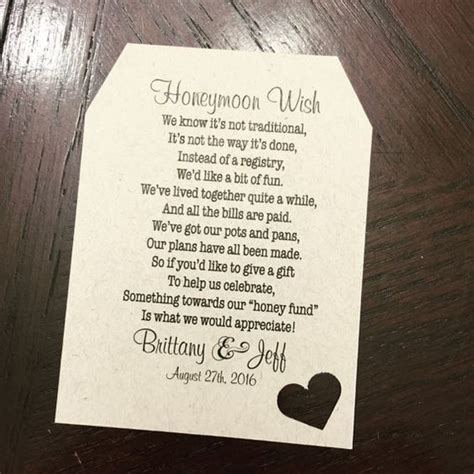 Honeymoon Wish
We know it's not traditional,
It's not the way it's done,
Instead of a registry,
We'd like a bit of fun.
We've lived together quite a while,
And all the bills are paid.
We've got our pots and pans,
Our plans have all been made.
So if you'd like to give a gift
To help us celebrate,
Something towards our “honey fund”
Is what we would appreciate!
Brittany & Jeff
August 27th, 2016